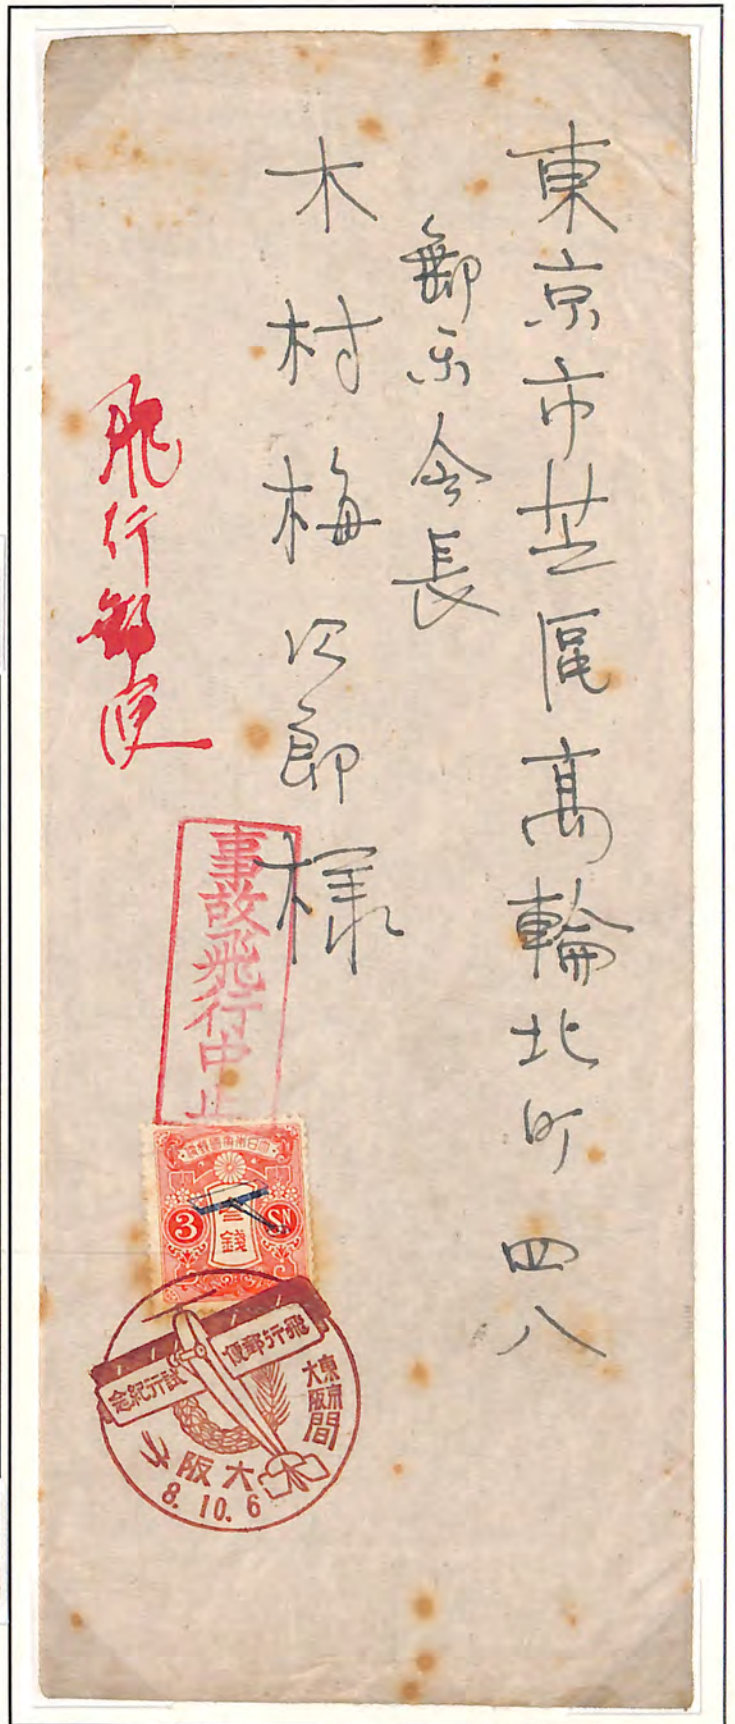 東京市芝区高輪北町四八
郵楽会長
木村梅次郎様
飛行郵便
事故飛行中止
大日本帝国郵便
3 SN
三銭
飛行郵便
試行紀念
東京
大阪
間
大阪
8.10.6